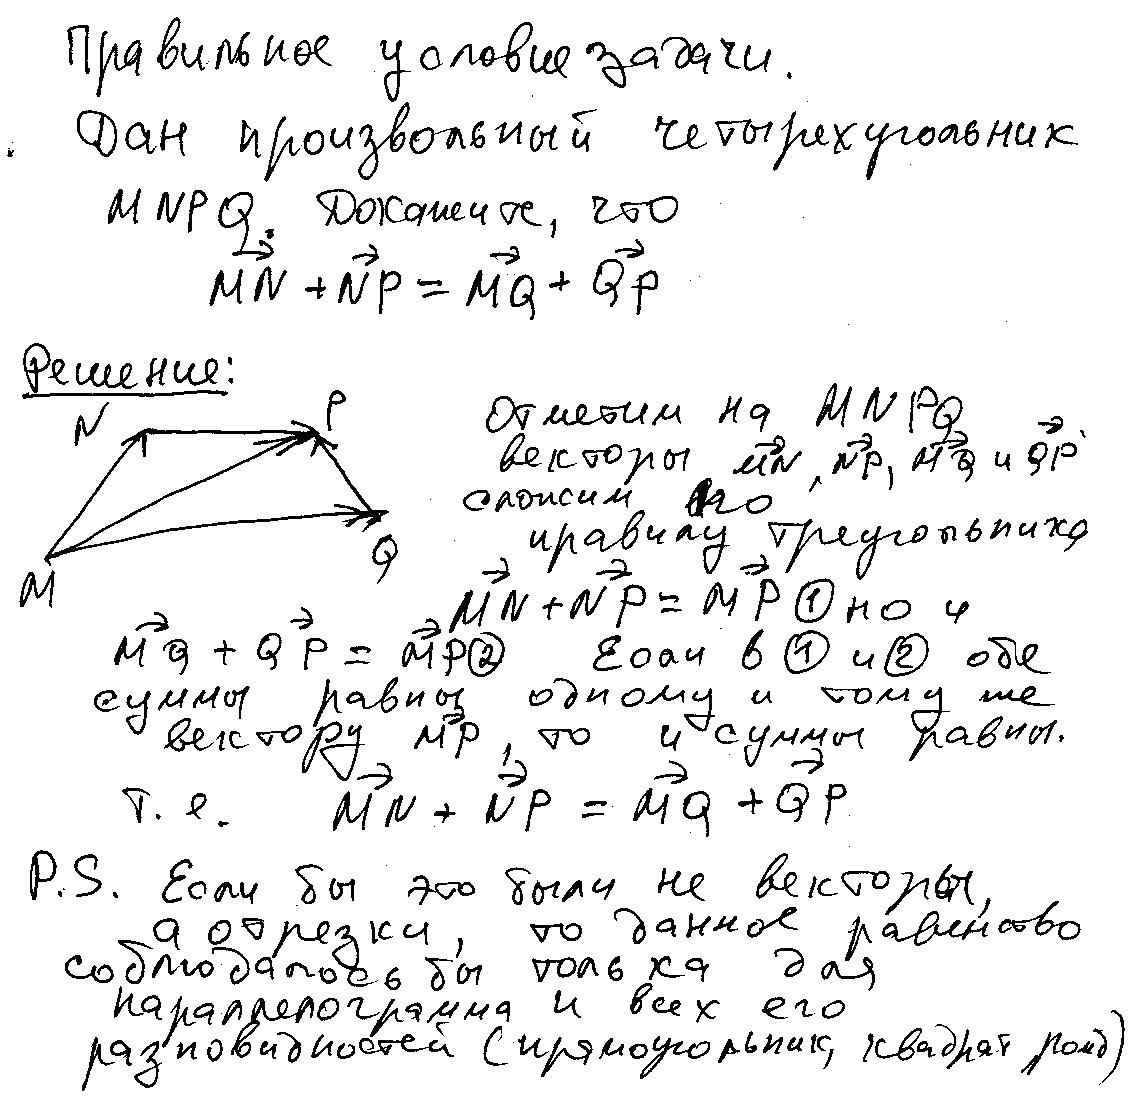 Правильное условие задачи.
Дан произвольный четырехугольник
MNPQ. Докажите, что
MN + NP = MQ + QP
Решение:
N P
M Q
Отметим на MNPQ
векторы MN, NP, MQ и QP
сложим по
правилу треугольника
MN + NP = MP ① но и
MQ + QP = MP ② Если в ① и ② обе
суммы равны одному и тому же
вектору MP, то и суммы равны.
т.е. MN + NP = MQ + QP
P.S. Если бы это были не векторы,
а отрезки, то данное равенство
соблюдалось бы только для
параллелограмма и всех его
разновидностей (прямоугольник, квадрат ромб)